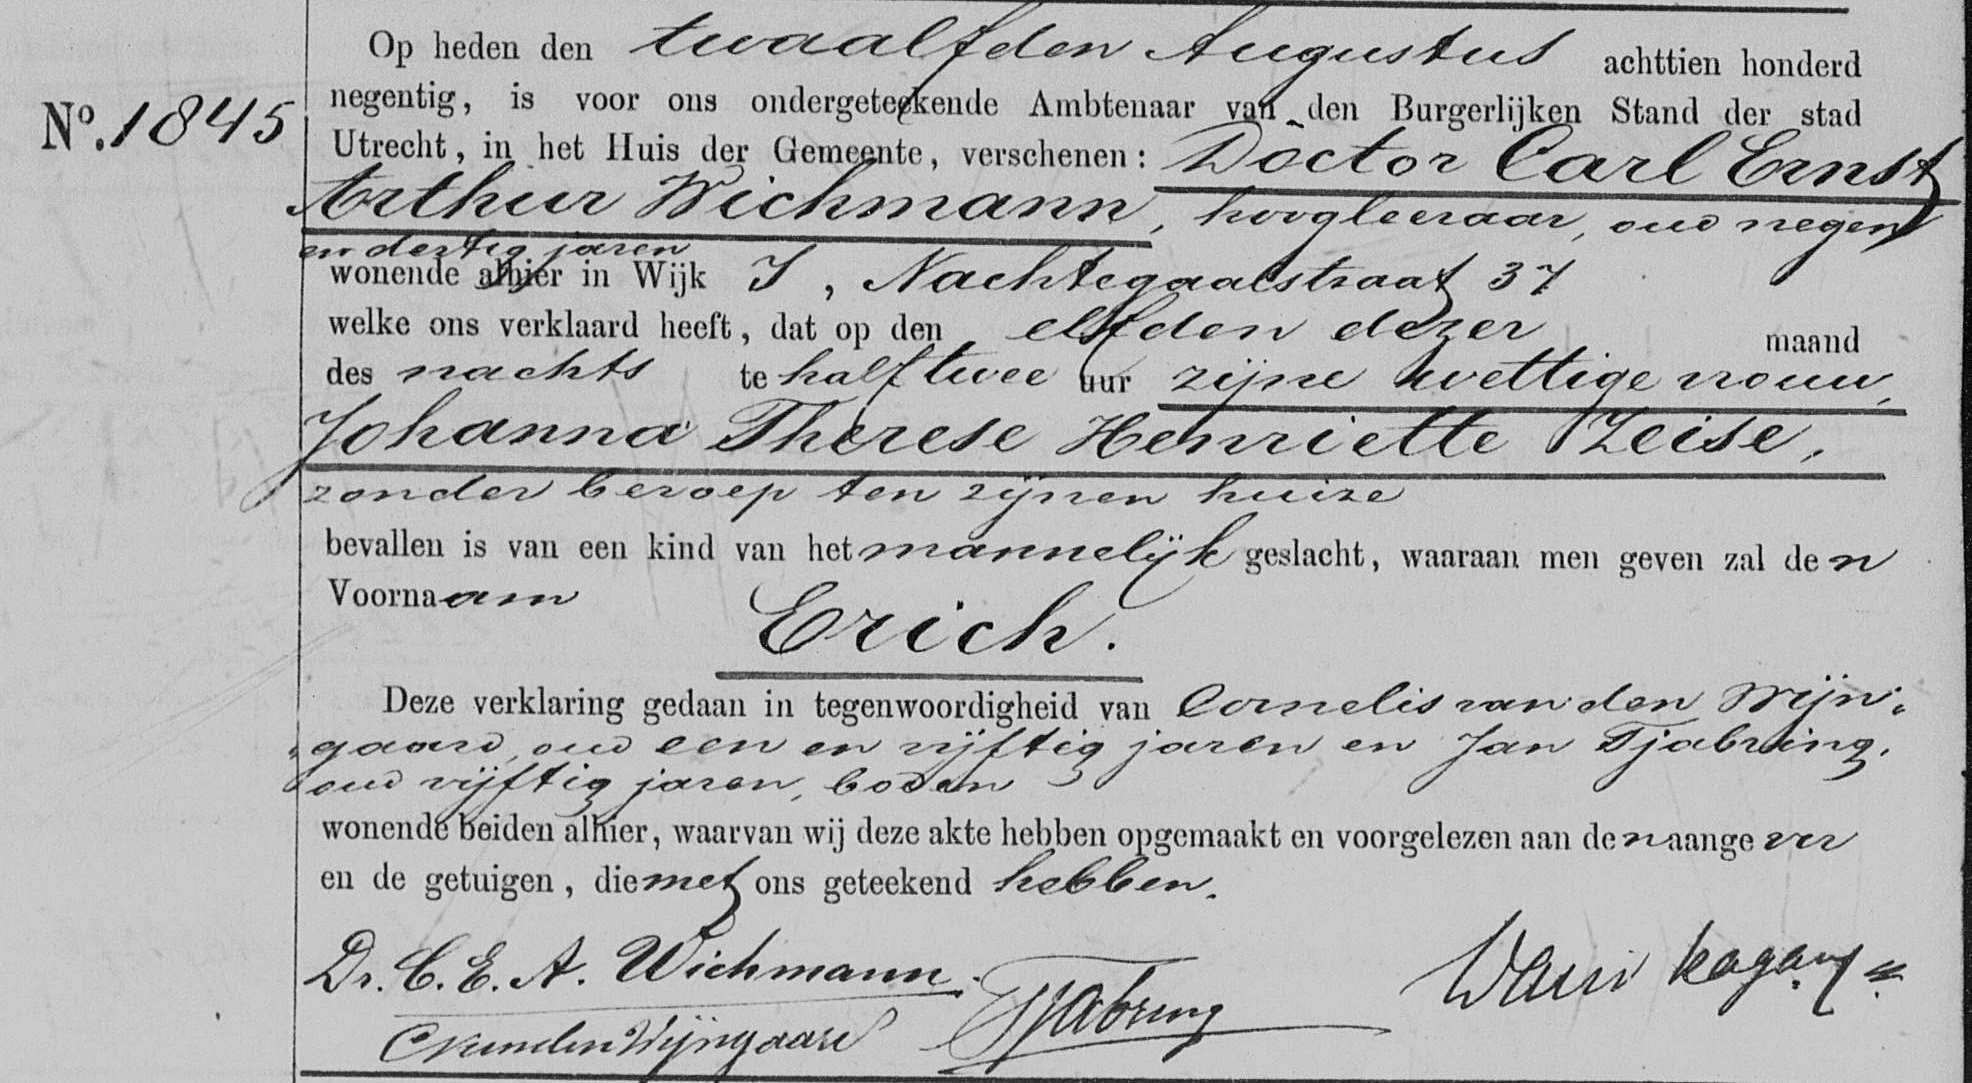 Op heden den twaalfden Augustus achttien honderd
No. 1845
negentig, is voor ons ondergeteekende Ambtenaar van den Burgerlijken Stand der stad
Utrecht, in het Huis der Gemeente, verschenen: Doctor Carl Ernst
Arthur Wichmann, hoogleeraar, oud negen
en dertig jaren
wonende alhier in Wijk I, Nachtegaalstraat 37
welke ons verklaard heeft, dat op den elfden dezer maand
des nachts te half twee uur zijne wettige vrouw,
Johanna Therese Henriette Zeise,
zonder beroep ten zijnen huize
bevallen is van een kind van het mannelijk geslacht, waaraan men geven zal den
Voornaam
Erich.
Deze verklaring gedaan in tegenwoordigheid van Cornelis van den Wijn-
gaard, oud een en vijftig jaren en Jan Tjabring,
oud vijftig jaren, boden
wonende beiden alhier, waarvan wij deze akte hebben opgemaakt en voorgelezen aan den aangever
en de getuigen, die met ons geteekend hebben.
Dr. C. E. A. Wichmann.
CvandenWijngaard Tjabring